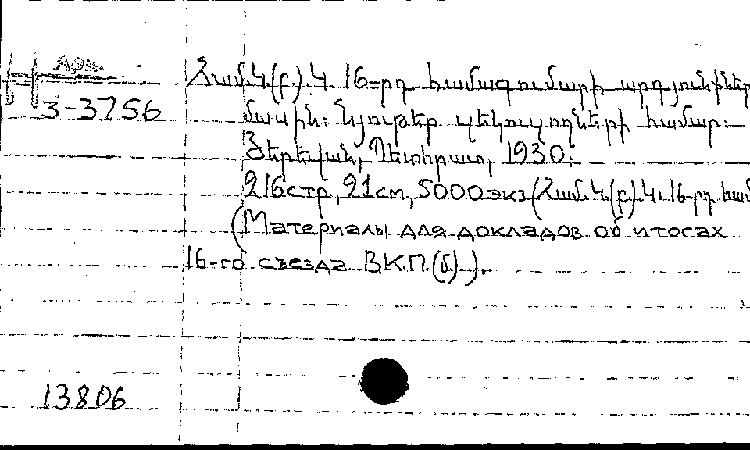 Арм.
3-3756
Համ.Կ.(բ).Կ. 16-րդ համագումարի արդյունքներ
մասին: Նյութեր զեկուցողների համար:
Յերեվան, Պետհրատ, 1930:
216стр, 21см, 5000экз (Համ.Կ.(բ).Կ. 16-րդ համ
(Материалы для докладов об итогах
16-го съезда ВКП(б)).
13806